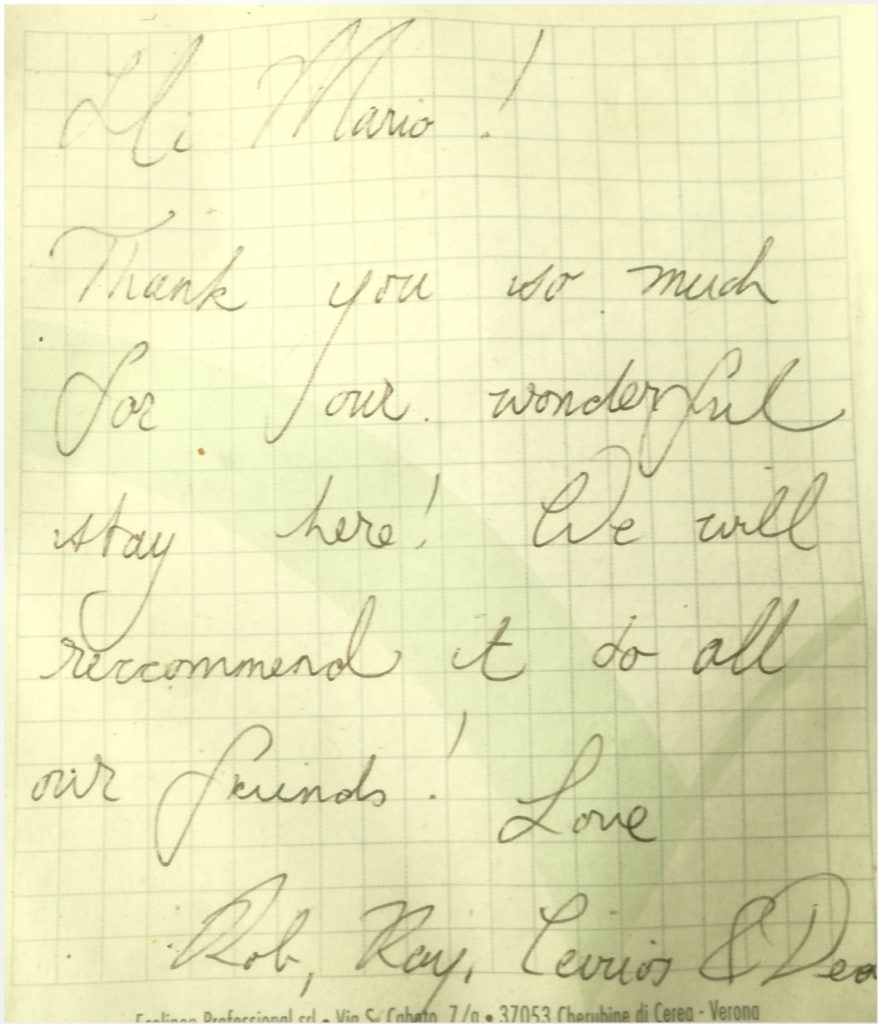 Hi Mario!
Thank you so much
for our wonderful
stay here! We will
reccommend it to all
our friends! Love
Rob, Ray, & Dea
Professional srl • Via S. Cabato, 7/a • 37053 Cherubine di Cerea - Verona